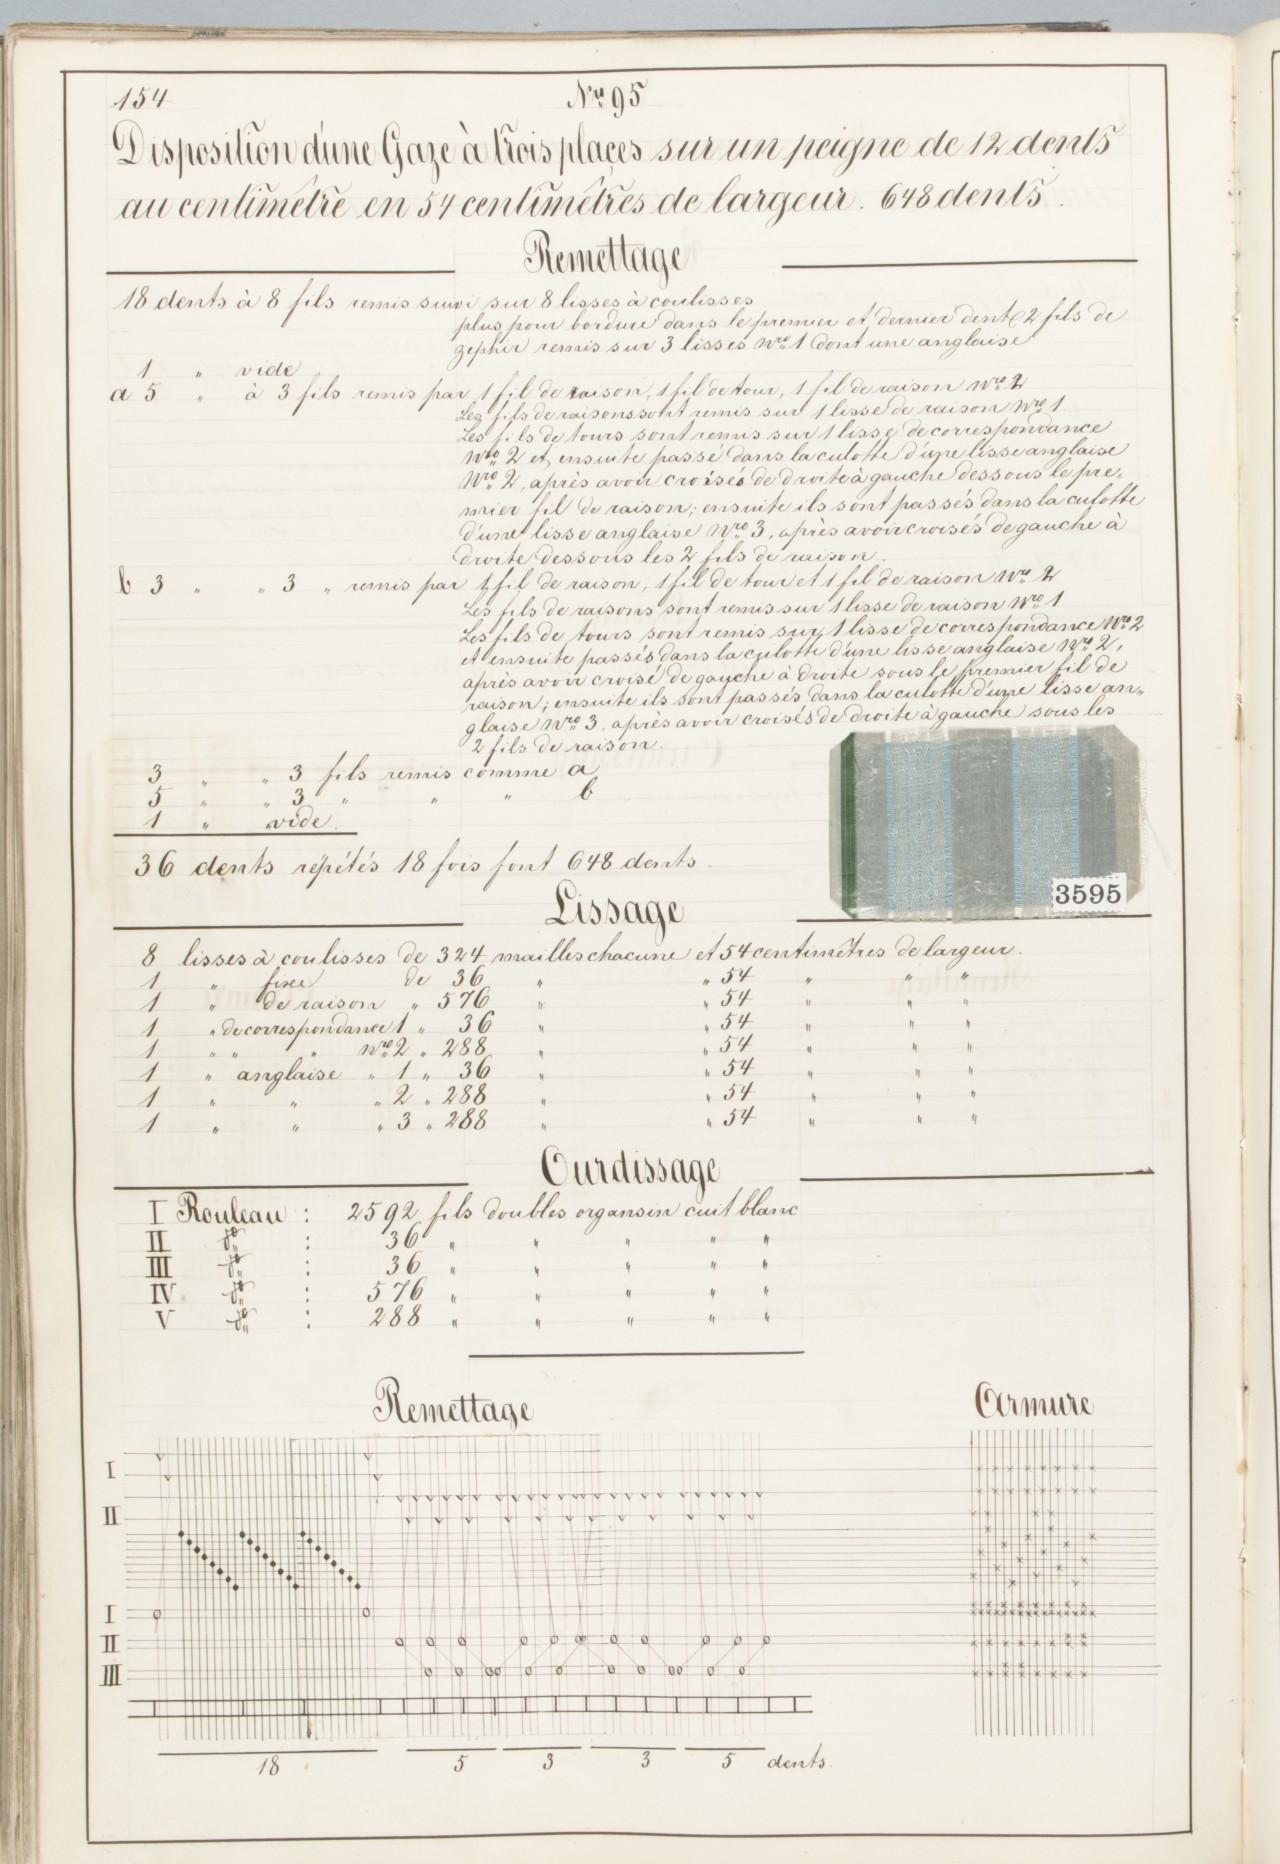 154
Nro 95
Disposition d'une Gaze à trois places sur un peigne de 12 dents
au centimêtre en 54 centimêtres de largeur. 648 dents.
Remettage
18 dents à 8 fils remis suivi sur 8 lisses à coulisses
plus pour bordure dans le premier et dernier dent 2 fils de
zephir remis sur 3 lisses Nro 1 dont une anglaise
1 " vide
a 5 " à 3 fils remis par 1 fil de raison, 1 fil de tour, 1 fil de raison Nro 2
Les fils de raisons sont remis sur 1 lisse de raison Nro 1
Les fils de tours sont remis sur 1 lisse de correspondance
Nro 2 et ensuite passé dans la culotte d'une lisse anglaise
Nro 2, après avoir croisés de droite à gauche dessous le pre"
mier fil de raison; ensuite ils sont passés dans la culotte
d'une lisse anglaise Nro 3, après avoir croisés de gauche à
droite dessous les 2 fils de raison.
b 3 " " 3 " remis par 1 fil de raison, 1 fil de tour et 1 fil de raison Nro 2
Les fils de raisons sont remis sur 1 lisse de raison Nro 1
Les fils de tours sont remis sur 1 lisse de correspondance Nro 2
et ensuite passés dans la culotte d'une lisse anglaise Nro 2,
après avoir croisé de gauche à droite sous le premier fil de
raison; ensuite ils sont passés dans la culotte d'une lisse an"
glaise Nro 3, après avoir croisés de droite à gauche sous les
2 fils de raison.
3 " " 3 fils remis comme a
5 " " 3 " " " b
1 " vide.
36 dents répétés 18 fois font 648 dents.
3595
Lissage
8 lisses à coulisses de 324 mailles chacune et 54 centimêtres de largeur.
1 " fixe de 36 " " 54 " " "
1 " de raison " 576 " " 54 " " "
1 " de correspondance 1 " 36 " " 54 " " "
1 " " " Nro 2 " 288 " " 54 " " "
1 " anglaise " 1 " 36 " " 54 " " "
1 " " " 2 " 288 " " 54 " " "
1 " " " 3 " 288 " " 54 " " "
Ourdissage
I Rouleau : 2592 fils doubles organsin cuit blanc
II do : 36 " " " " "
III do : 36 " " " " "
IV do : 576 " " " " "
V do : 288 " " " " "
Remettage
Armure
I
II
I
II
III
18 5 3 3 5 dents.